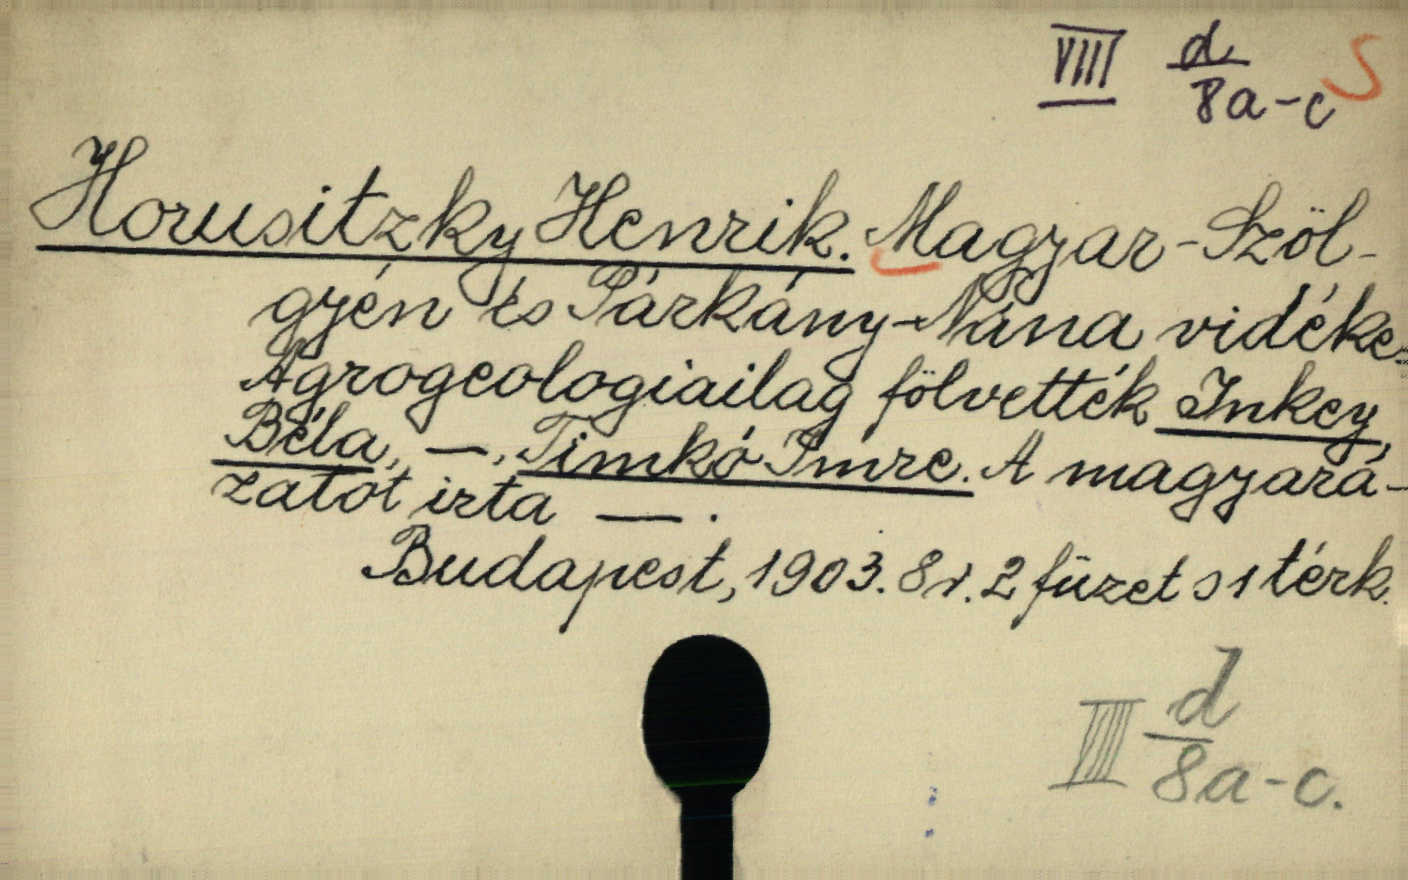 VIII d S
8a-c
Horusitzky Henrik. Magyar-Szöl-
gyén és Párkány-Nána vidéke=
Agrogeologiailag fölvették Inkey
Béla, —, Timkó Imre. A magyará-
zatot irta — .
Budapest, 1903. 8r. 2 füzet s 1 térk.
VIII d
8a-c.